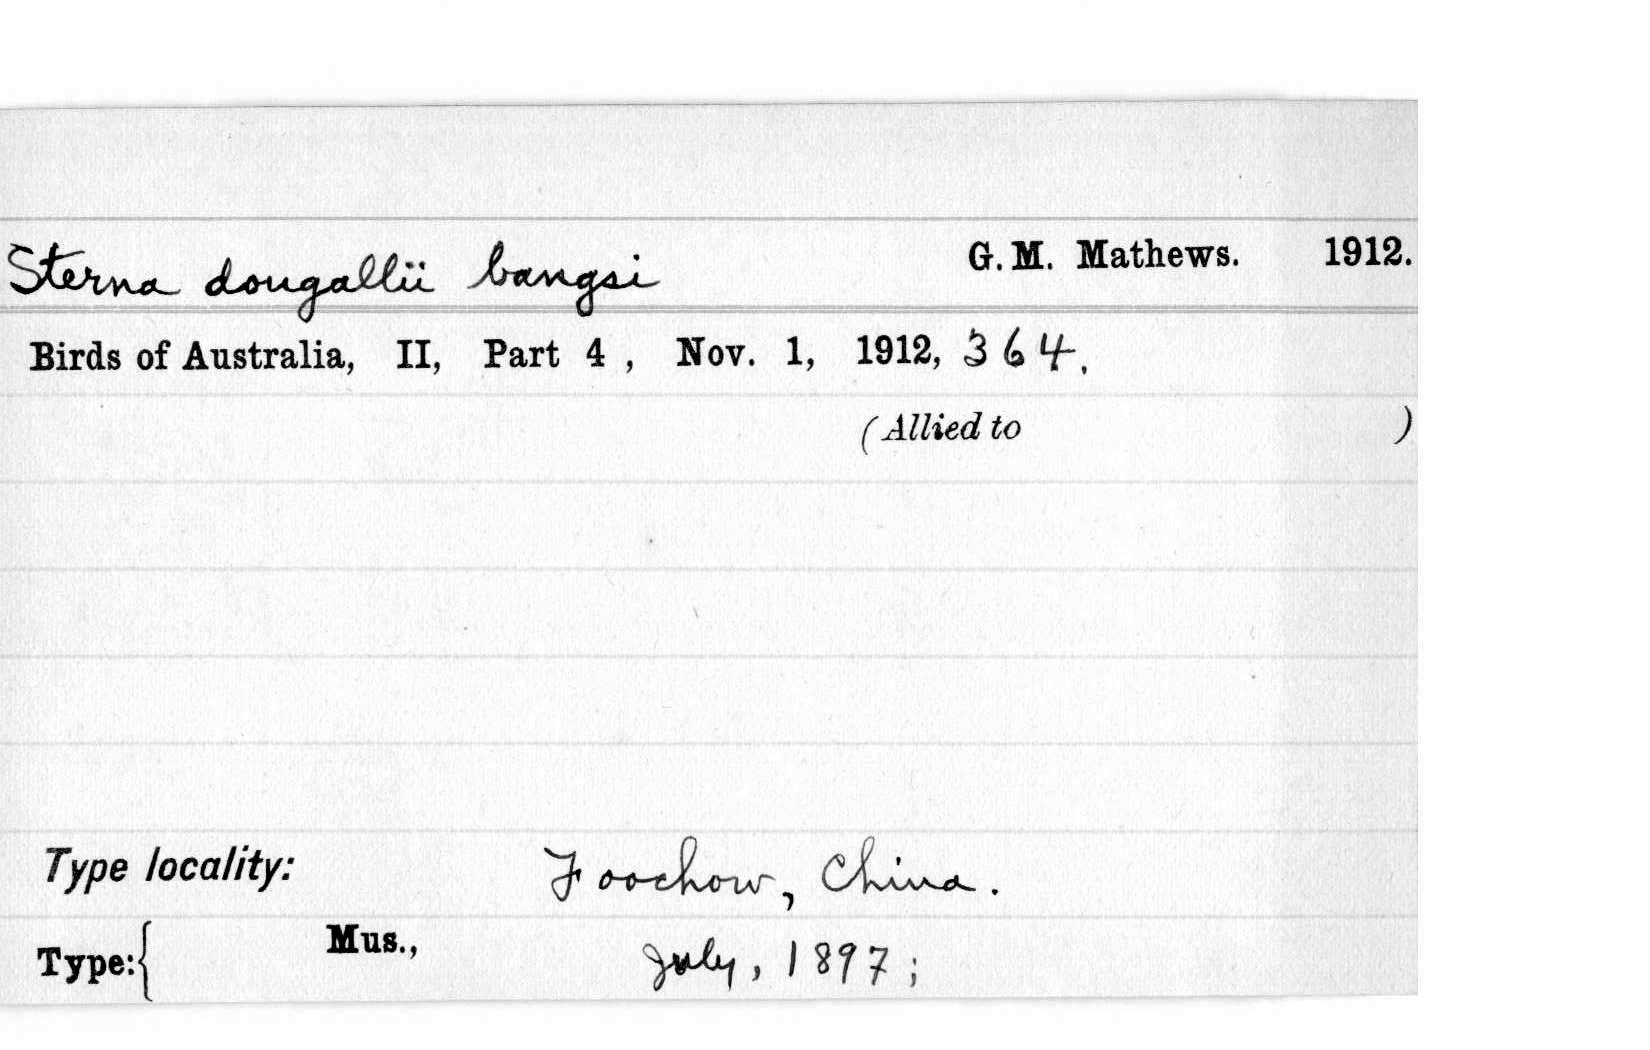 Sterna dougallii bangsi G. M. Mathews. 1912.
Birds of Australia, II, Part 4 , Nov. 1, 1912, 364.
(Allied to )
Type locality: Foochow, China.
Type:{ Mus., July, 1897 ;